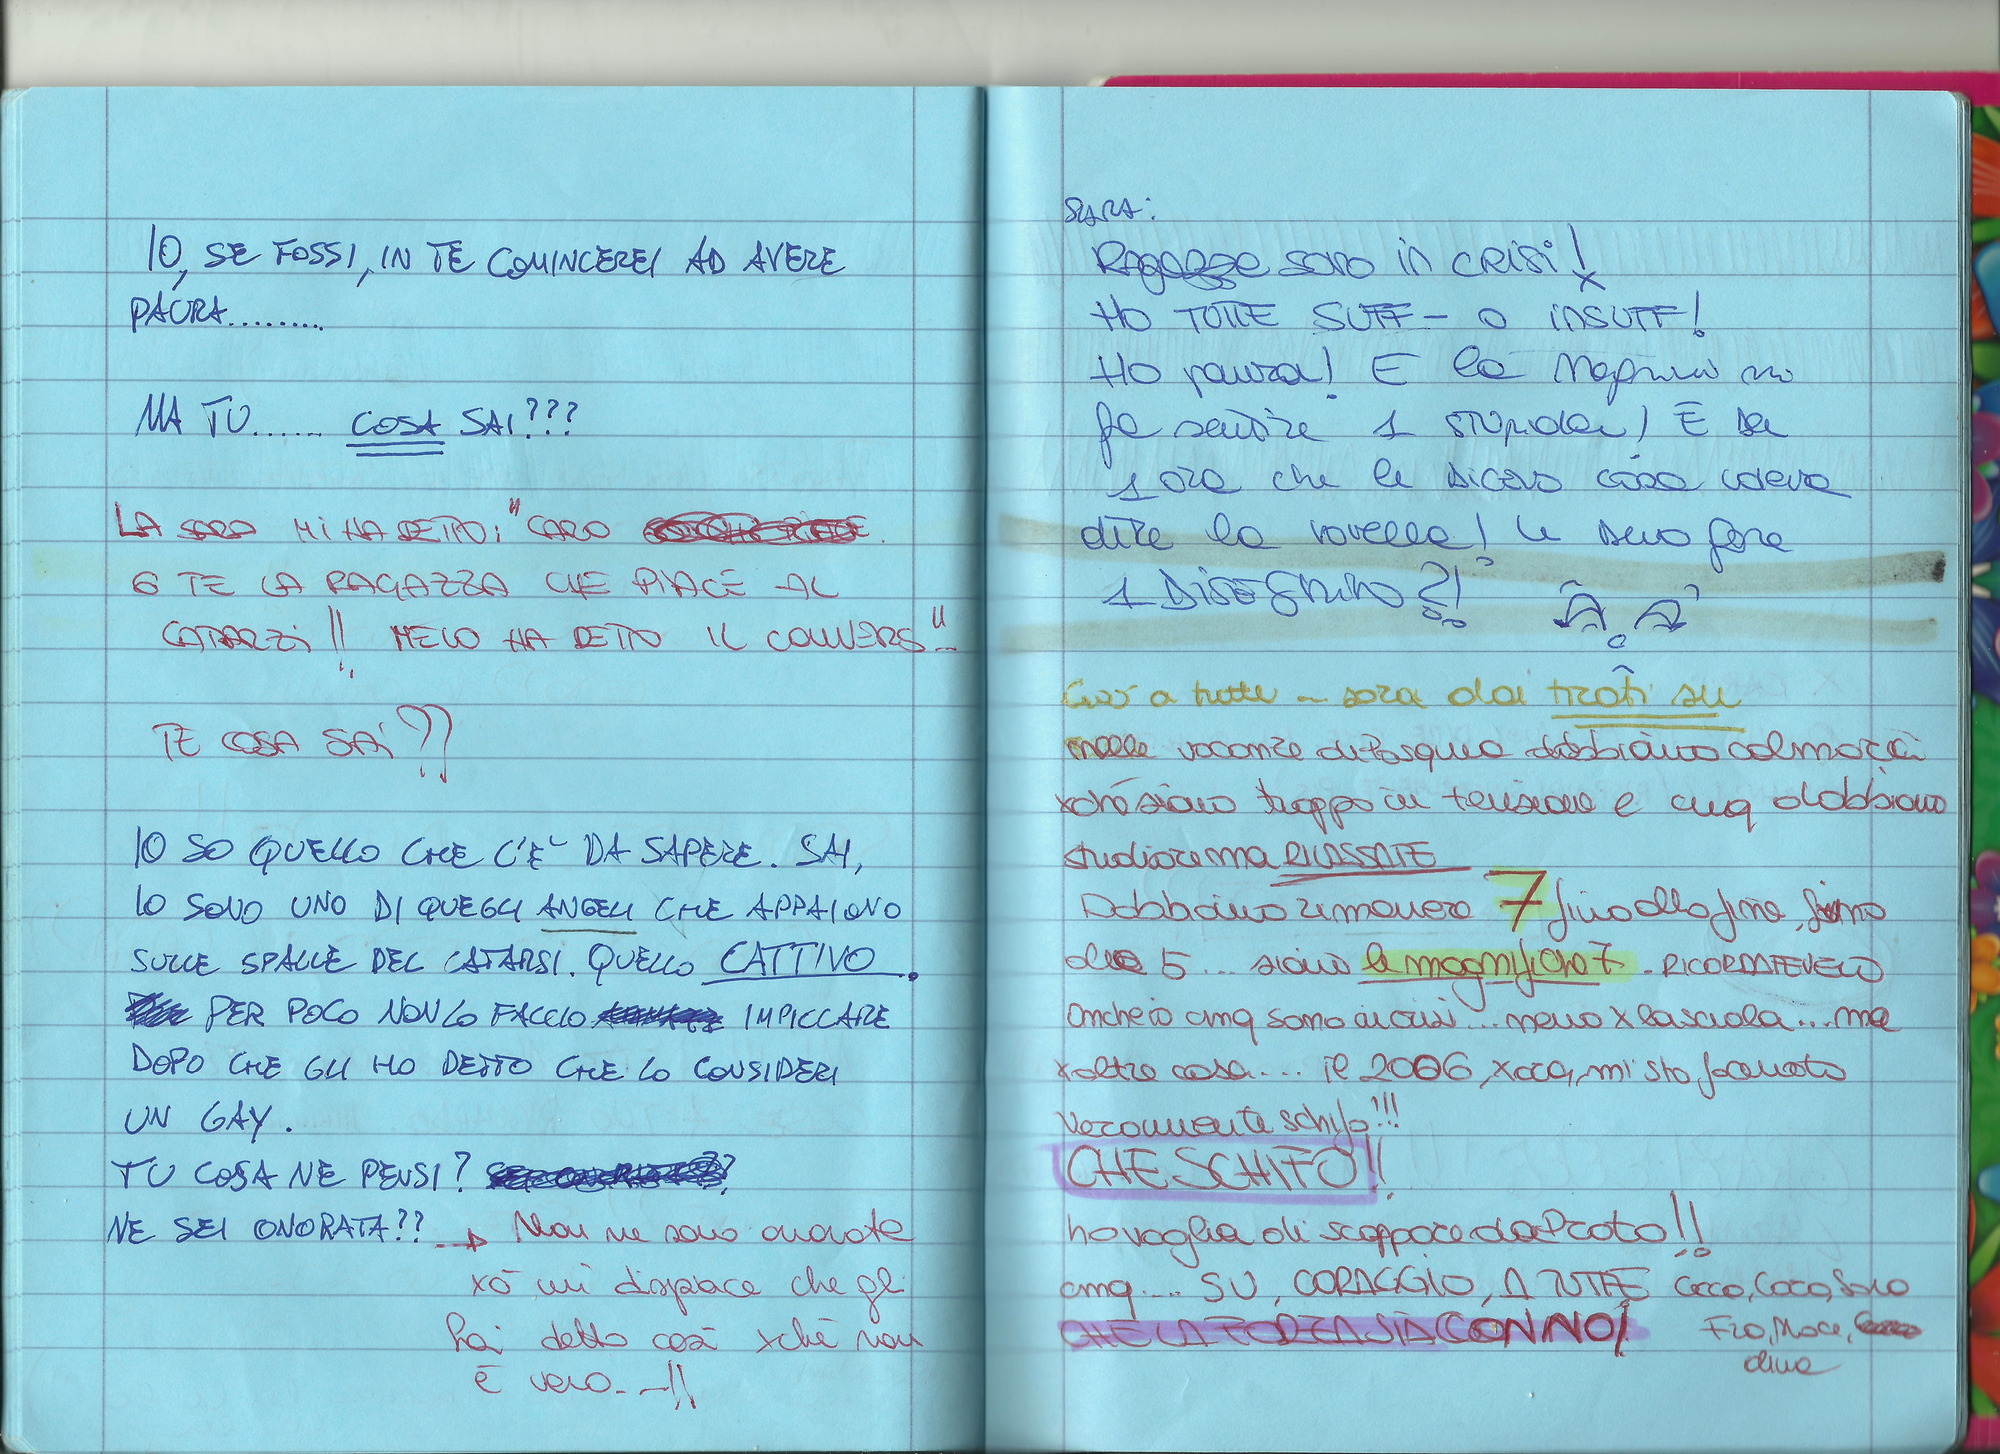 IO, SE FOSSI, IN TE COMINCEREI AD AVERE
PAURA.........
MA TU...... COSA SAI???
LA SARA MI HA DETTO: "CARO
6 TE LA RAGAZZA CHE PIACE AL
CATARZI!! MELO HA DETTO IL CONVERS"...
TE COSA SAI??
IO SO QUELLO CHE C'E' DA SAPERE. SAI,
IO SONO UNO DI QUEGLI ANGELI CHE APPAIONO
SULLE SPALLE DEL CATARSI. QUELLO CATTIVO.
PER POCO NON LO FACCIO IMPICCARE
DOPO CHE GLI HO DETTO CHE LO CONSIDERI
UN GAY.
TU COSA NE PENSI?
NE SEI ONORATA??
Non ne sono onorata
xò mi dispiace che gli
hai detto così xchè non
è vero...!!
SARA:
Ragazze sono in crisi!
Ho TUTTE SUFF- O INSUFF!
Ho paura! E la mi
fa sentire 1 stupida! È da
1 ora che le dicevo cosa voleva
dire la novella! Le devo fare
1 DISEGNINO?!
Ciao a tutte... sara dai tirati su
nelle vacanze di Pasqua dobbiamo calmarci
xché siamo troppo in tensione e cmq dobbiamo
studiare ma RILASSATE
Dobbiamo rimanere 7 fino alla fine, fino
alla 5... siamo le magnifiche 7. RICORDATEVELO
Anche io cmq sono in crisi... meno x la scuola... ma
x altre cose.... il 2006, x ora, mi sta facendo
veramente schifo!!!
CHE SCHIFO!!
ho voglia di scappare da Prato!!
cmq.... SU, CORAGGIO, A TUTTE Cecco, Coco, Sara
CHE LA FORZA SIA CON NOI! Fra, Mace,